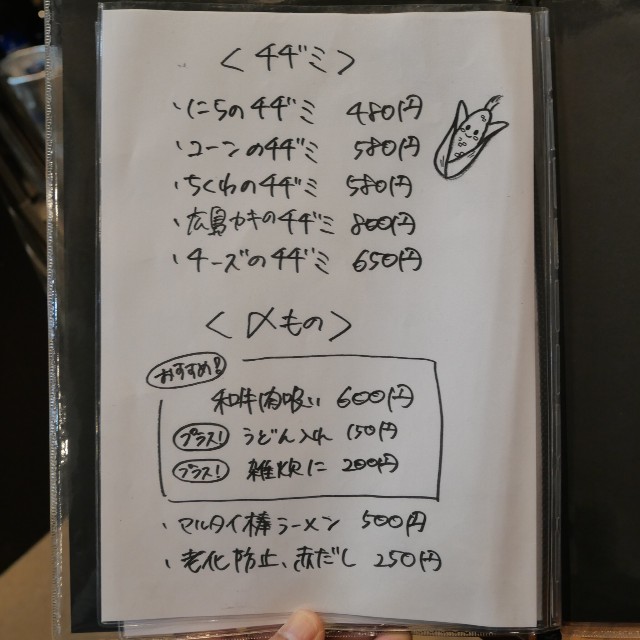 〈チヂミ〉
・にらのチヂミ 480円
・コーンのチヂミ 580円
・ちくわのチヂミ 580円
・広島カキのチヂミ 800円
・チーズのチヂミ 650円
〈〆もの〉
おすすめ!
和牛肉吸い 600円
プラス! うどん入れ 150円
プラス! 雑炊に 200円
・マルタイ棒ラーメン 500円
・老化防止、赤だし 250円